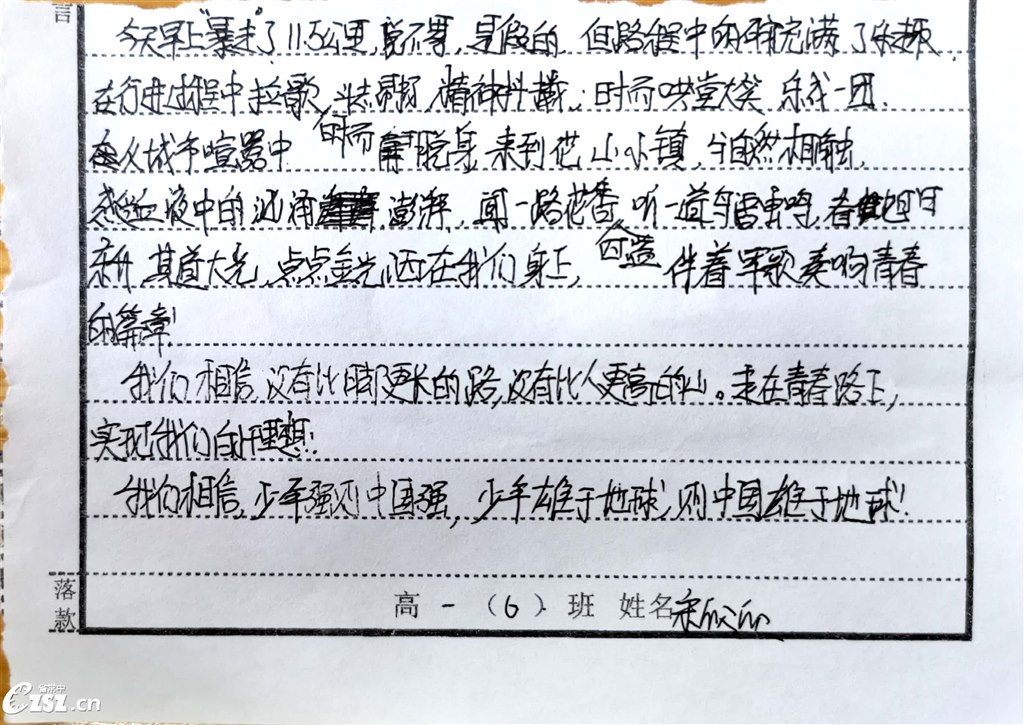 言
今天早上“暴走”了11.5公里，说不累，是假的，但路程中的确充满了乐趣，
在行进过程中拉歌，精神抖擞；时而哄堂大笑，乐成一团，
从城市喧嚣中时而脱身，来到花山小镇，与自然相触，
感受血液中的汹涌澎湃，闻一路花香，听一道鸟雷虫鸣，春旭日
东升，其道大光，点点金光洒在我们身上，伴着军歌奏响青春
的篇章！
我们相信，没有比脚更长的路，没有比人更高的山。走在青春路上，
实现我们的理想；
我们相信，少年强则中国强，少年雄于地球，则中国雄于地球！
落款
高一（6）班 姓名
省常中
CZSZ.cn